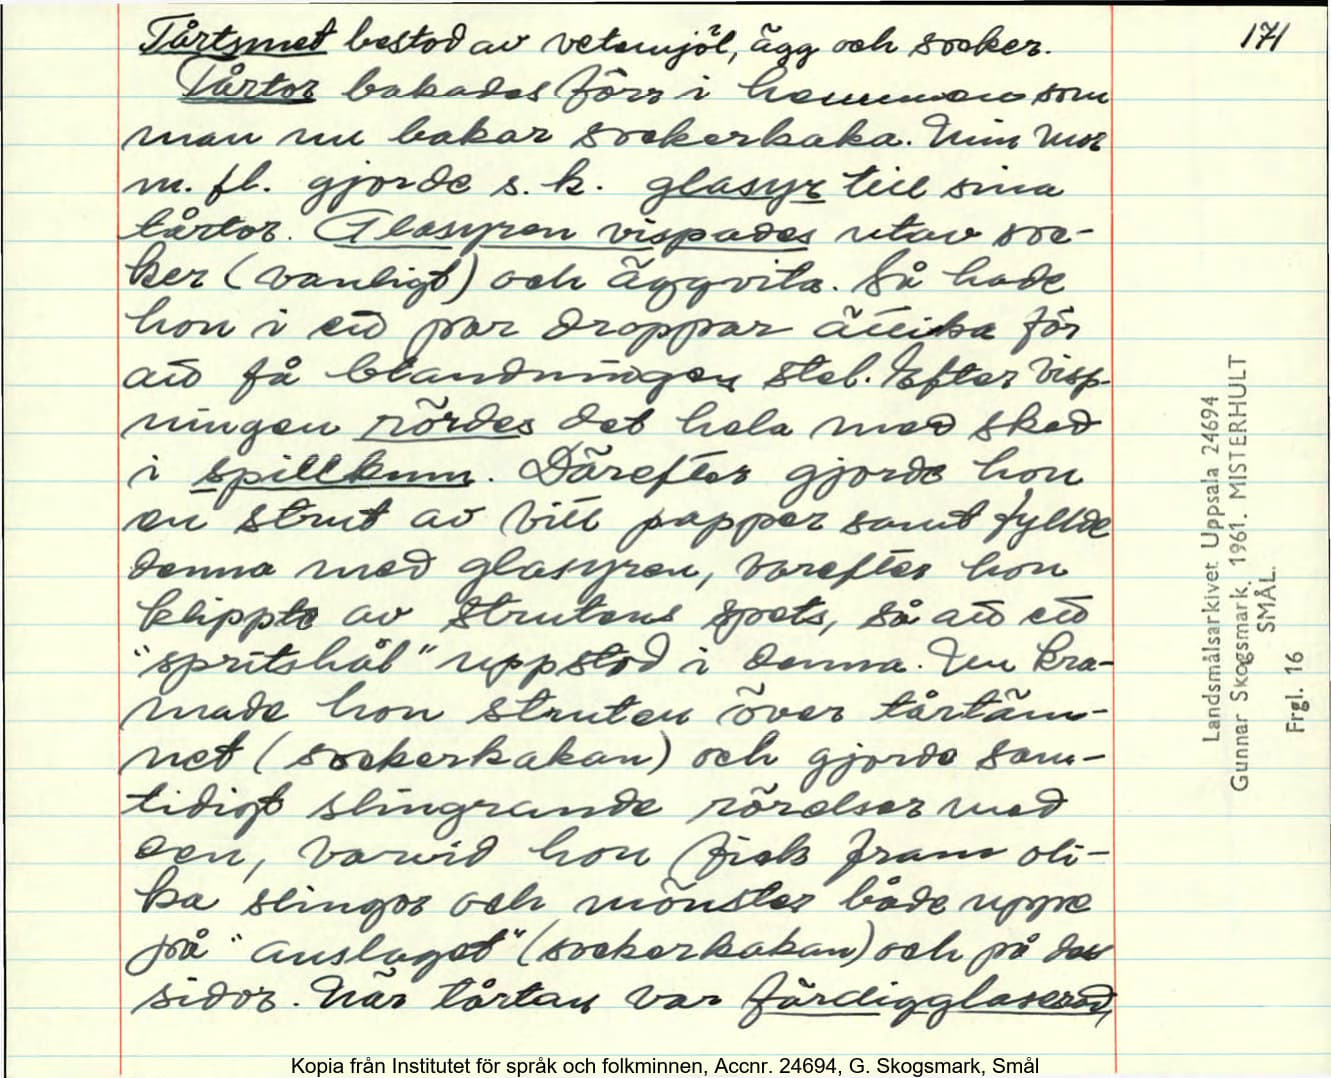 171
Tårtsmet bestod av vetemjöl, ägg och socker.
Tårtor bakades förr i hemmen som
man nu bakar sockerkaka. Min mor
m. fl. gjorde s. k. glasyr till sina
tårtor. Glasyren vispades utav soc-
ker (vanligt) och äggvita. Så hade
hon i ett par droppar ättika för
att få blandningen stel. Efter visp-
ningen rördes det hela med sked
i spillkum. Därefter gjorde hon
en strut av vitt papper samt fyllde
denna med glasyren, varefter hon
klippte av strutens spets, så att ett
"spritshål" uppstod i denna. Nu kra-
made hon struten över tårtäm-
net (sockerkakan) och gjorde sam-
tidigt slingrande rörelser med
den, varvid hon fick fram oli-
ka slingor och mönster både uppe
på "anslaget" (sockerkakan) och på dess
sidor. När tårtan var färdigglaserad,
Landsmålsarkivet Uppsala 24694
Gunnar Skogsmark. 1961. MISTERHULT
SMÅL.
Frgl. 16
Kopia från Institutet för språk och folkminnen, Accnr. 24694, G. Skogsmark, Smål